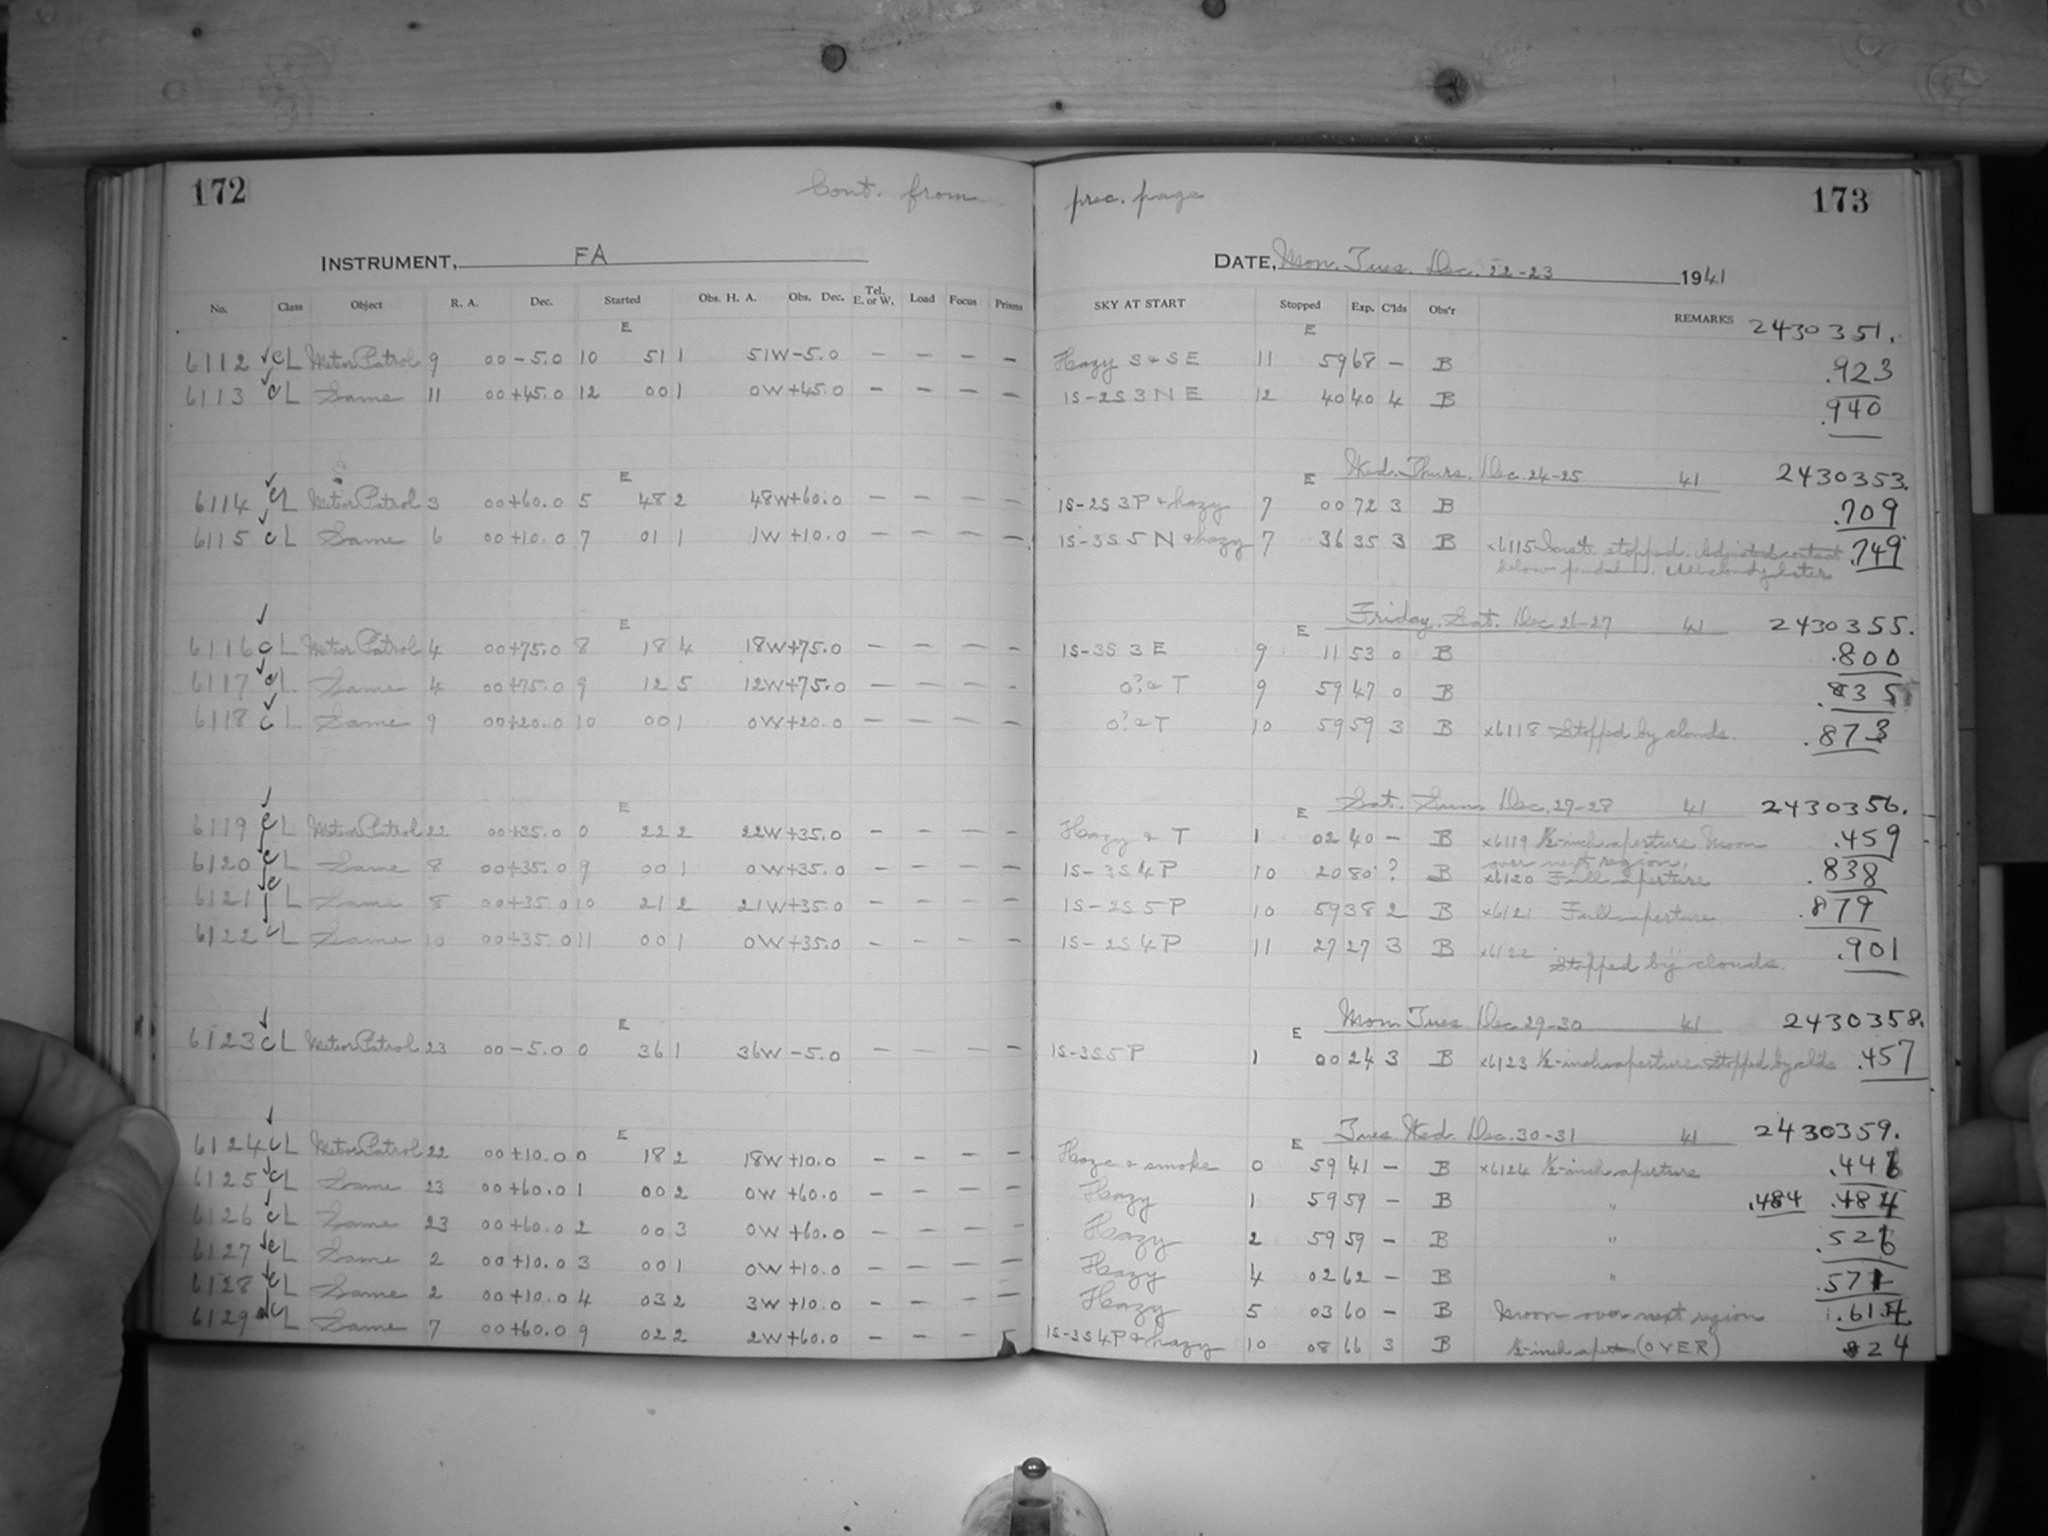 172 Cont. from prec. page 173
INSTRUMENT, FA DATE, Mon. Tues. Dec. 22-23 1941
No. Class Object R. A. Dec. Started Obs. H. A. Obs. Dec. Tel. E. or W. Load Focus Prisms SKY AT START Stopped Exp. C'lds Obs'r REMARKS 2430351.
E E
6112 ✓ C L Meteor Patrol 9 00 -5.0 10 51 1 51W -5.0 — — — — Hazy S & SE 11 59 68 — B .923
6113 ✓ C L Same 11 00 +45.0 12 00 1 0W +45.0 — — — — 1S-2S 3 N E 12 40 40 4 B .940
E E Wed. Thurs. Dec. 24-25 41 2430353.
6114 ✓ C L Meteor Patrol 3 00 +60.0 5 48 2 48W +60.0 — — — — 1S-2S 3P & hazy 7 00 72 3 B .709
6115 ✓ C L Same 6 00 +10.0 7 01 1 1W +10.0 — — — — 1S-3S 5 N & hazy 7 36 35 3 B x6115 Inst. stopped. Adjusted contact .749
below pendulum. All cloudy later
E E Friday. Sat. Dec 26-27 41 2430355.
6116 ✓ C L Meteor Patrol 4 00 +75.0 8 18 4 18W +75.0 — — — — 1S-3S 3 E 9 11 53 0 B .800
6117 ✓ C L. Same 4 00 +75.0 9 12 5 12W +75.0 — — — - 0? & T 9 59 47 0 B .835
6118 ✓ C L Same 9 00 +20.0 10 00 1 0W +20.0 — — — — 0? & T 10 59 59 3 B x6118 Stopped by clouds. .873
E E Sat. Sun. Dec. 27-28 41 2430356.
6119 ✓ C L Meteor Patrol 22 00 +35.0 0 22 2 22W +35.0 — — — — Hazy & T 1 02 40 — B x6119 ½-inch aperture. Moon .459
over next region.
6120 ✓ C L Same 8 00 +35.0 9 00 1 0W +35.0 — — — — 1S-3S 4P 10 20 80 ? B x6120 Full aperture .838
6121 ✓ C L Same 8 00 +35.0 10 21 2 21W +35.0 — — — — 1S-2S 5P 10 59 38 2 B x6121 Full aperture .879
6122 ✓ C L Same 10 00 +35.0 11 00 1 0W +35.0 — — — — 1S-2S 4P 11 27 27 3 B x6122 " " .901
Stopped by clouds.
E E Mon. Tues. Dec 29-30 41 2430358.
6123 ✓ C L Meteor Patrol 23 00 -5.0 0 36 1 36W -5.0 — — — — 1S-3S 5P 1 00 24 3 B x6123 ½-inch aperture. Stopped by clds .457
E E Tues. Wed. Dec. 30-31 41 2430359.
6124 ✓ C L Meteor Patrol 22 00 +10.0 0 18 2 18W +10.0 — — — — Haze & smoke 0 59 41 — B x6124 ½-inch aperture .446
6125 ✓ C L Same 23 00 +60.0 1 00 2 0W +60.0 — — — — Hazy 1 59 59 — B " .484 .484
6126 ✓ C L Same 23 00 +60.0 2 00 3 0W +60.0 — — — — Hazy 2 59 59 — B " .526
6127 ✓ C L Same 2 00 +10.0 3 00 1 0W +10.0 — — — — Hazy 4 02 62 — B " .571
6128 ✓ C L Same 2 00 +10.0 4 03 2 3W +10.0 — — — — Hazy 5 03 60 — B Moon over next region .614
6129 ✓ C L Same 7 00 +60.0 9 02 2 2W +60.0 — — — 1S-3S 4P & hazy 10 08 66 3 B ½-inch apert (OVER) 824